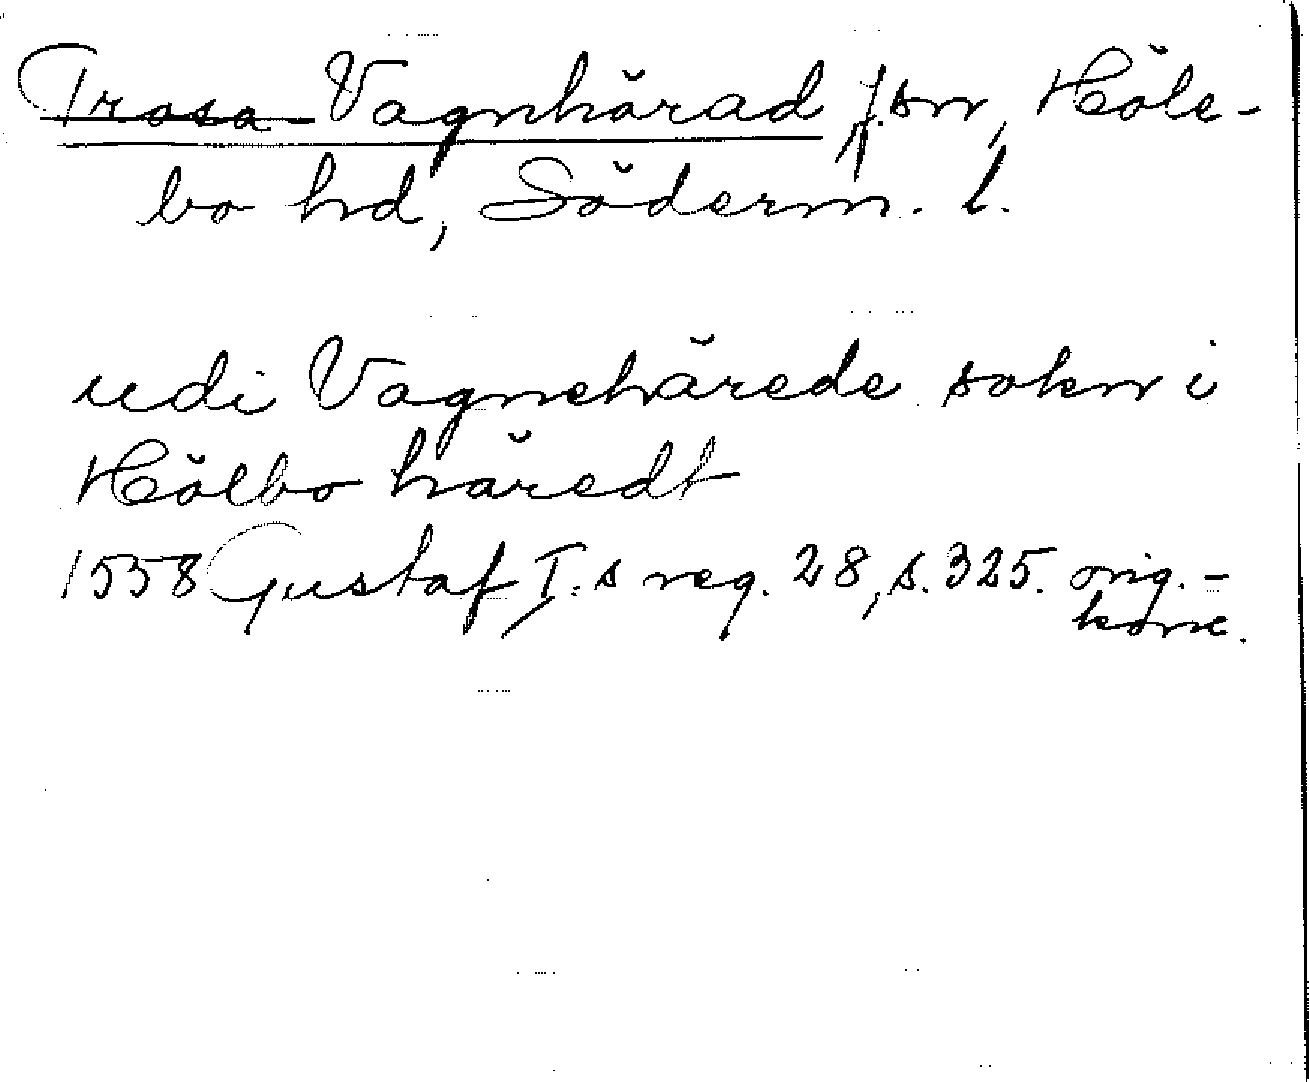 Trosa-Vagnhärad f.sn, Höle-
bo hd, Söderm. l.
udi Vagnehärede sokn i
Hölbo häredt
1558 Gustaf I.s reg. 28, s. 325. orig.-
konc.